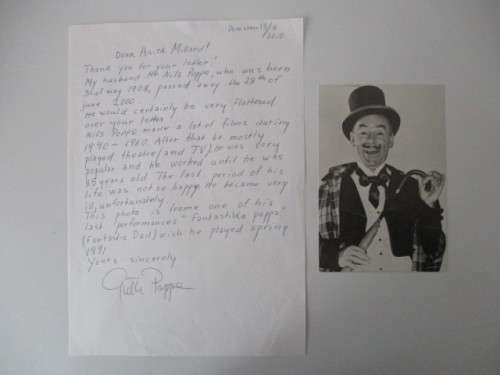 2010
Thank you for your letter!
My husband Mr Nils Poppe, who was born
31st may 1908, passed away the 28th of
June 2000
He would certainly be very flattered
over your letter
Nils Poppe made a lot of films during
1940 - 1960. After that he mostly
played theatre (and TV), was very
popular and he worked until he was
85 years old The last period of his
life was not so happy. He became very
ill, unfortunately
This photo is frome one of his
last performances - Fantastiske pappa"
(Fantastic Dad) wish he played spring
1991
Yours sincerely
Poppe